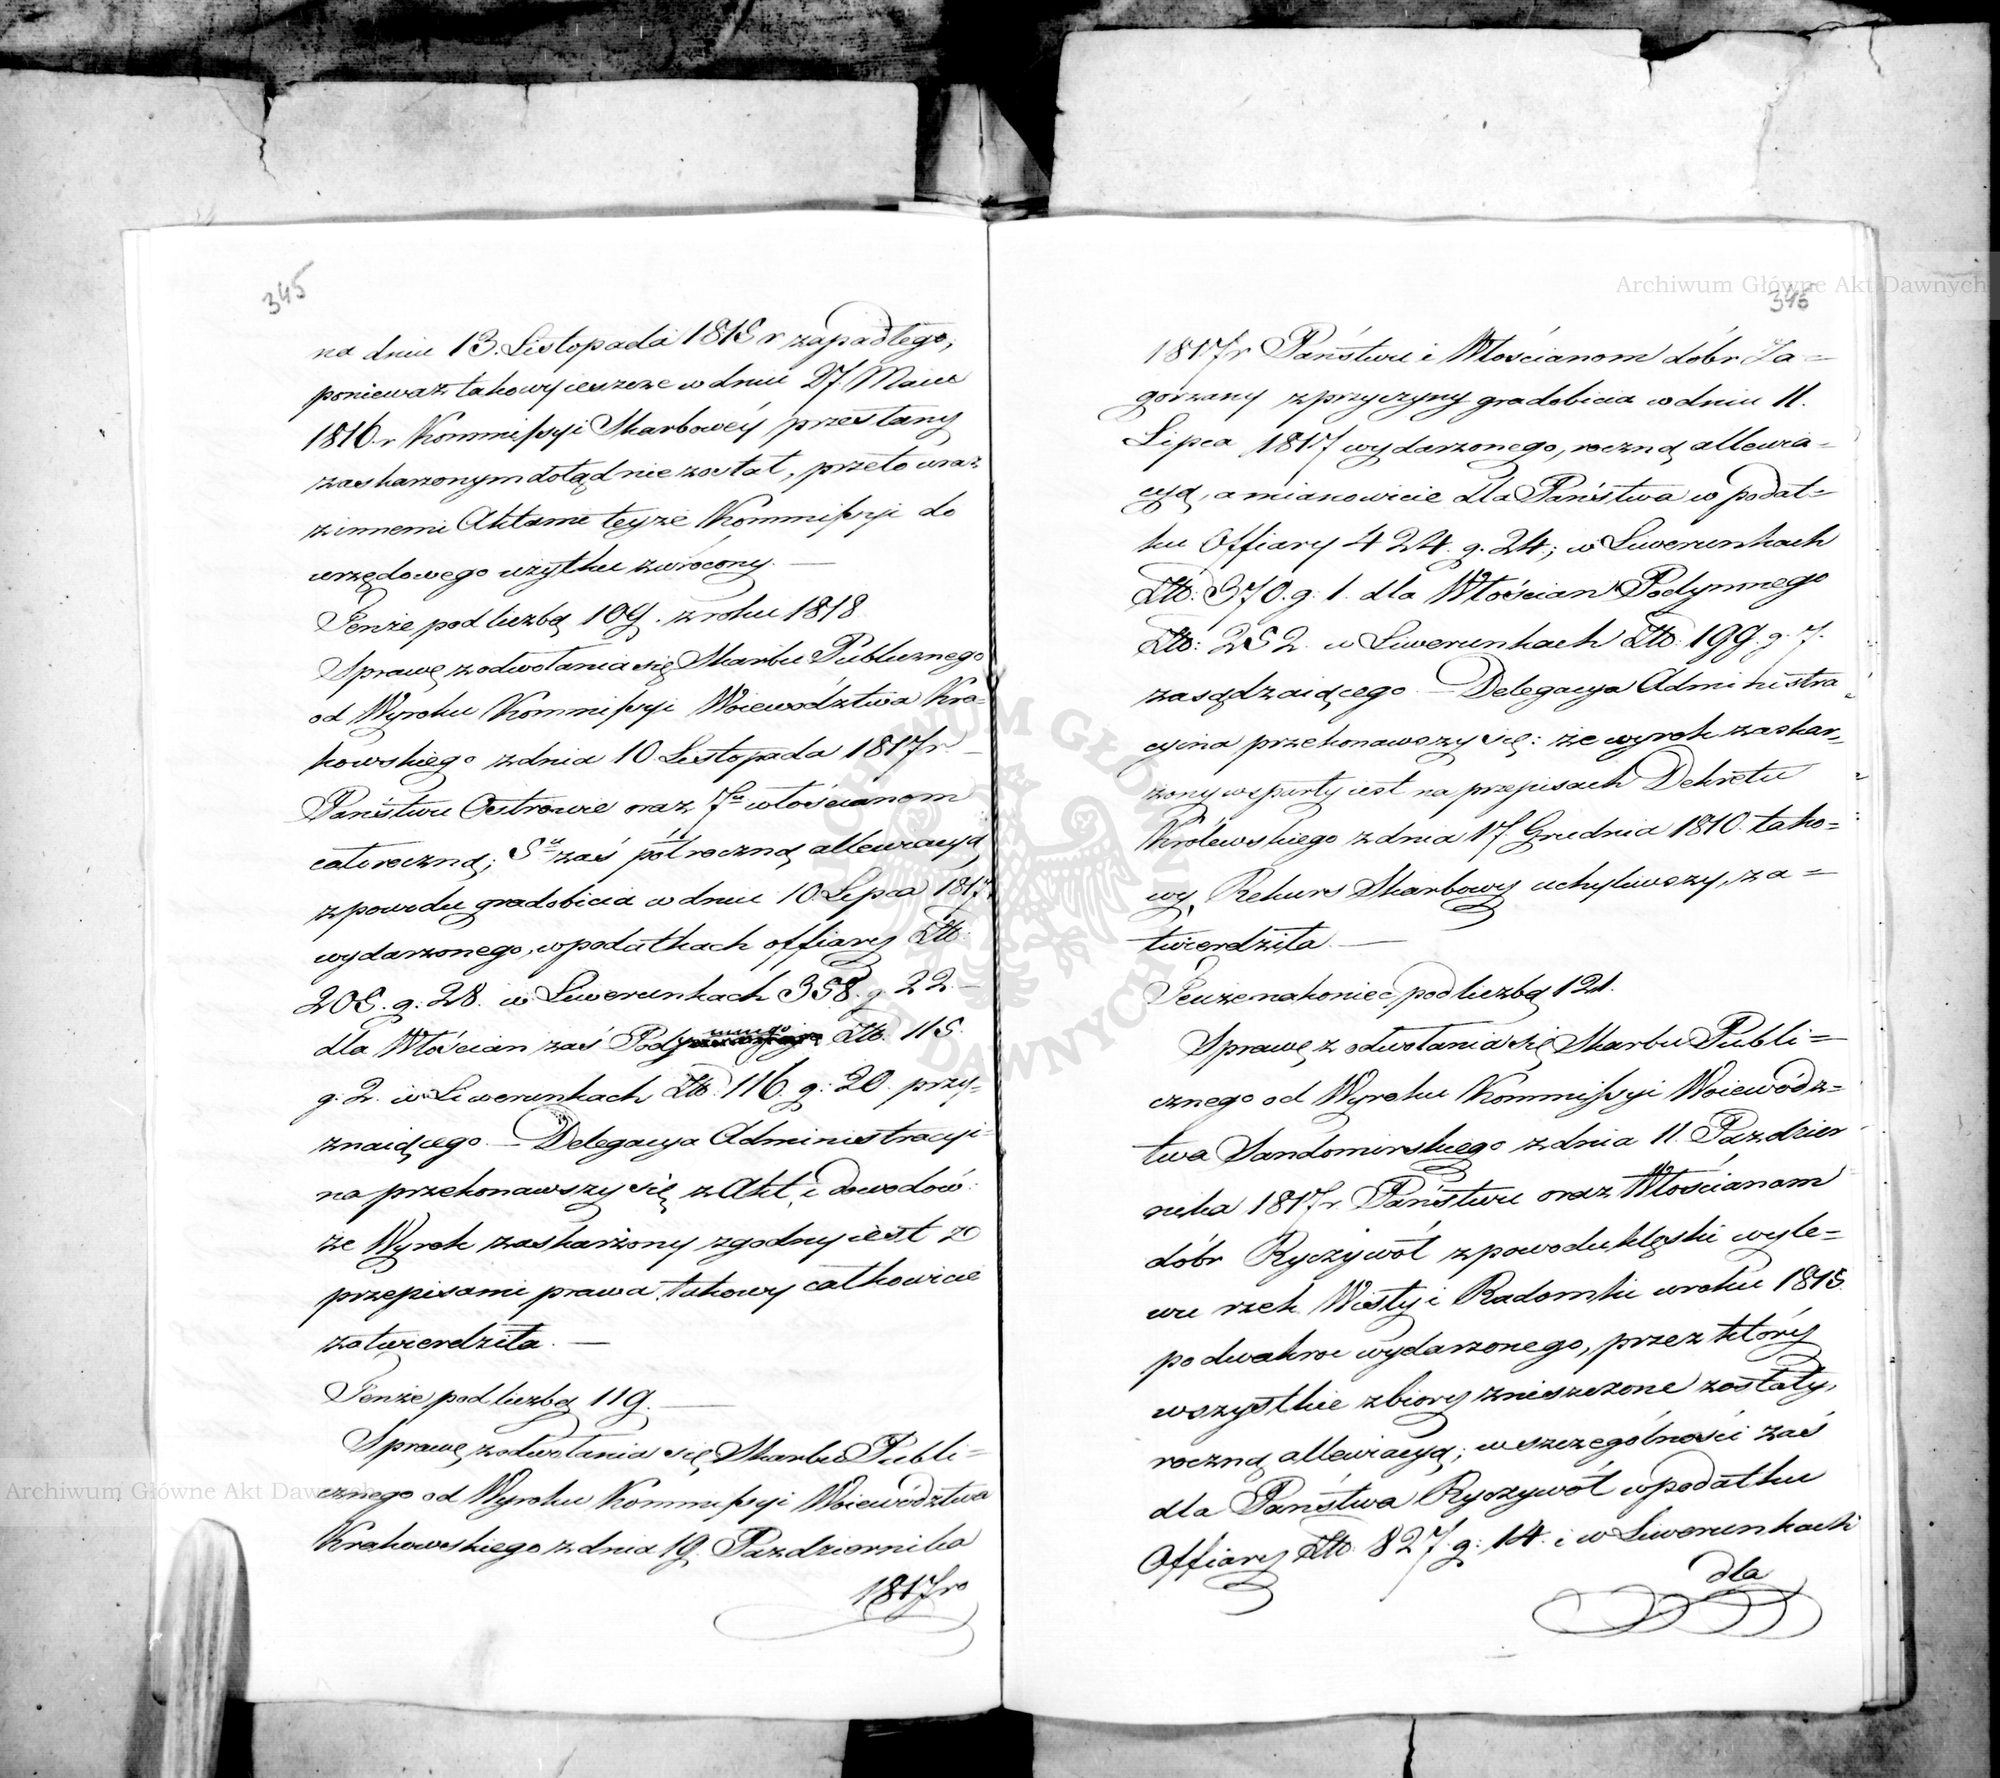 345
na dniu 13. Listopada 1815 r zapadłego,
ponieważ takowy ieszcze w dniu 27. Maia
1816. r Kommissyi Skarbowéy przesłany
zaskarzonym dotąd nie został, przeto wraz
z innemi Aktami teyże Kommissyi do
urzędowego użytku zwrócony. —
Tenże pod liczbą 109. z roku 1818.
Sprawę z odwołania się Skarbu Publicznego
od Wyroku Kommissyi Woiewództwa Kra-
kowskiego z dnia 10. Listopada 1817 r. —
Państwu Ostrowie oraz 7u włościanom
całoroczną; 5u zaś półroczną allewiacyą
z powodu gradobicia w dniu 10. Lipca 1817.
wydarzonego, w podatkach offiary Złt:
205. g: 28. w Liwerunkach 358. g. 22 —
dla Włościan zaś Podymnego Złt. 115.
g: 2. w Liwerunkach Złt. 116. g: 20. przy-
znaiącego. — Delegacya Administracyi-
na przekonawszy się z Akt i dowodów:
że Wyrok zaskarżony zgodny iest ze
przepisami prawa, takowy całkowicie
zatwierdziła. —
Tenże pod liczbą 119. —
Sprawę z odwołania się Skarbu Publi=
cznego od Wyroku Kommissyi Woiewództwa
Krakowskiego z dnia 19. Pazdziernika
1817 ro
346
1817 r Państwu i Włościanom dóbr Za=
gorzany z przyczyny gradobicia w dniu 11.
Lipca 1817 wydarzonego, roczną allewia=
cyą, a mianowicie dla Państwa w podat=
ku Offiary 424. g. 24.; w Liwerunkach
Złt: 370. g: 1. dla Włościan Podymnego
Złt: 252. w Liwerunkach Złt: 199. g. 7.
zasądzaiącego. — Delegacya Administra=
cyina przekonawszy się: że wyrok zaskar=
żony wsparty iest na przepisach Dekretu
Królewskiego z dnia 17. Grudnia 1810. tako=
wy, Rekurs Skarbowy uchyliwszy, za=
twierdziła. —
Tenże nakoniec pod liczbą 121.
Sprawę z odwołania się Skarbu Publi=
cznego od Wyroku Kommissyi Woiewódz=
twa Sandomirskiego z dnia 11. Pazdzier
nika 1817 r. Państwu oraz Włościanom
dóbr Ryczywół z powodu klęski wyle=
wu rzek Wisły i Radomki w roku 1815.
po dwakroc wydarzonego, przez który
wszystkie zbiory zniszczone zostały,
roczną allewiacyą; w szczególności zaś
dla Państwa Ryczywół w podatku
Offiary Złt: 827. g: 14. i w Liwerunkach
dla
Archiwum Główne Akt Dawnych
Archiwum Główne Akt Dawnych
ARCHIWUM GŁÓWNE AKT DAWNYCH